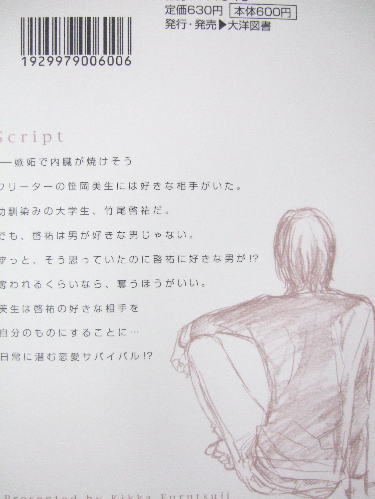 定価630円 本体600円
発行・発売▶大洋図書
1929979006006
Script
──嫉妬で内臓が焼けそう
フリーターの笹岡美生には好きな相手がいた。
幼馴染みの大学生、竹尾啓祐だ。
でも、啓祐は男が好きな男じゃない。
ずっと、そう思っていたのに啓祐に好きな男が!?
奪われるくらいなら、奪うほうがいい。
美生は啓祐の好きな相手を
自分のものにすることに…
日常に潜む恋愛サバイバル!?
Presented by Kikka Furutsuji